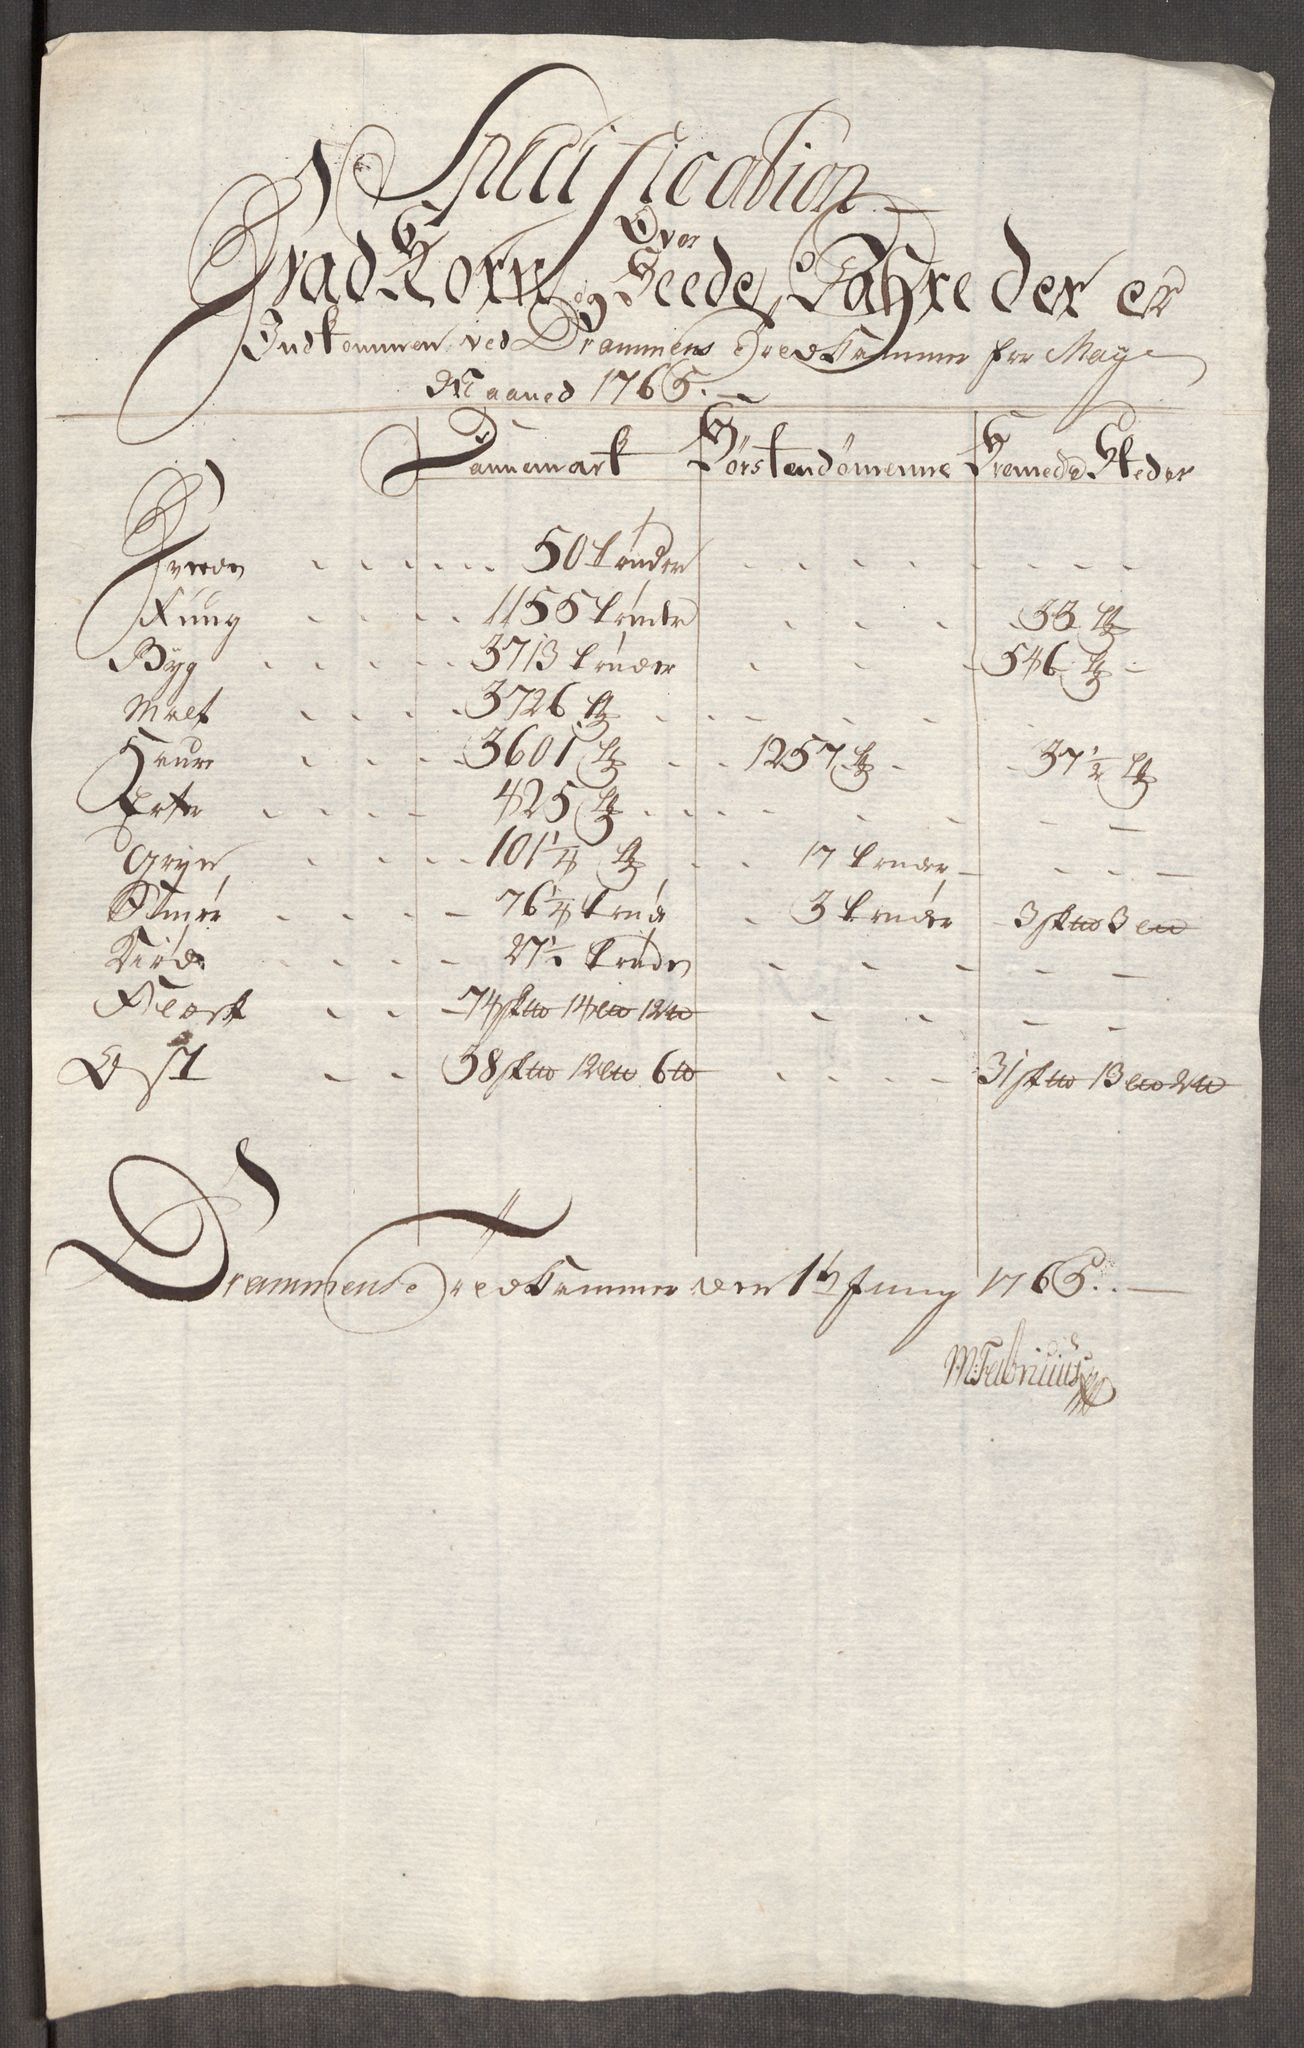 Specification
Over
Hvad Korn og Feede Vahre der er
Indkommen ved Drammens Toldkammer for May
Maaned 1765.
Dannemark Förstendömenne Fremede Steder
Hvede 50 tønder
Rug 1155 tønder 33 tr
Byg 3713 tønder 546 tr
Malt 3726 tr
Haure 3601 tr 1257 tr 37 1/2 tr
Erter 425 tr
Gryn 101 1/4 tr 17 tønder
Smør 76 1/4 tønde 3 tønder 3 sk℔ 3 l℔
Kiød 27 1/2 tønder
Flesk 74 sk℔ 14 l℔ 12 ℔
Ost 38 sk℔ 12 l℔ 6 ℔ 31 sk℔ 13 l℔ 2 ℔
Drammens Toldkammer den 1te Juny 1765.
M: Fabricius